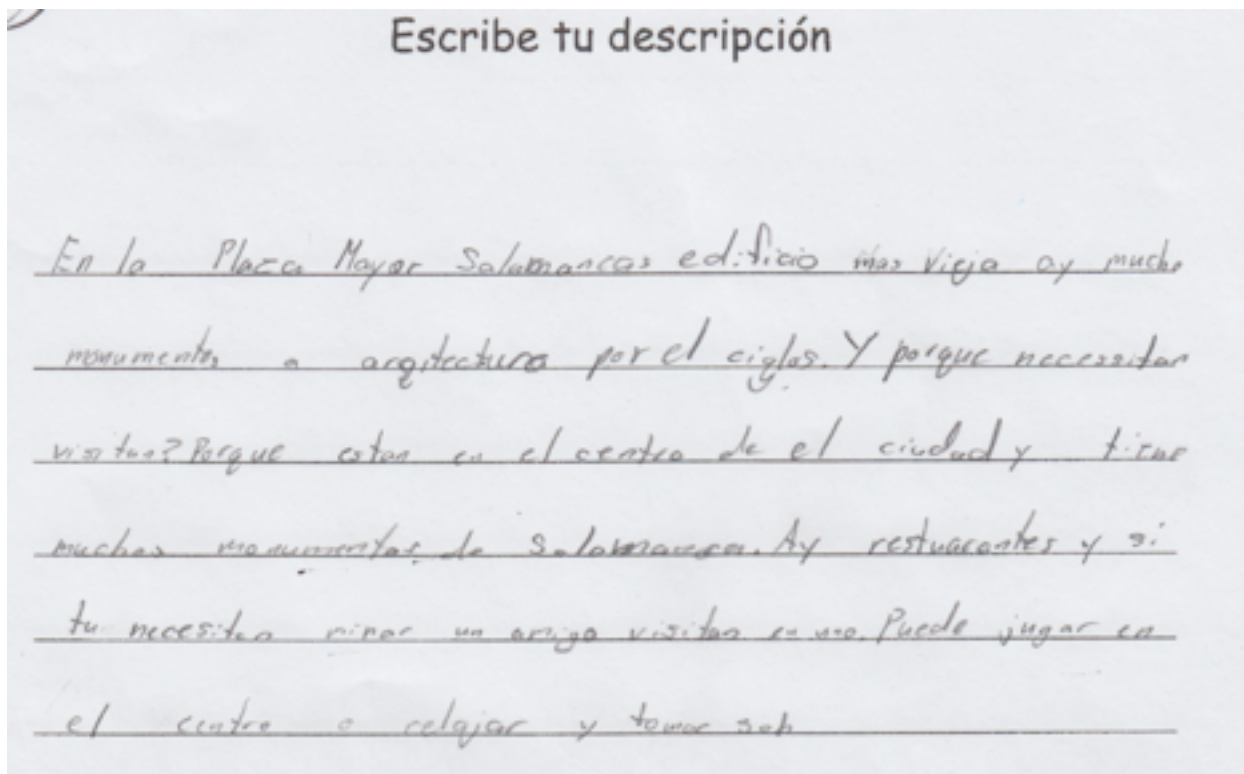 Escribe tu descripción
En la Plaza Mayor Salamancas edificio mas vieja ay mucho
monumentos o arqitectura por el ciglos. Y porque necessitan
visitan? Porque estan en el centro de el ciudad y tiene
muchos monumentos de Salamanca. Ay restuarantes y si
tu necesitan mirar un amigo visitan en uno. Puede jugar en
el centro o relajar y tomar sol